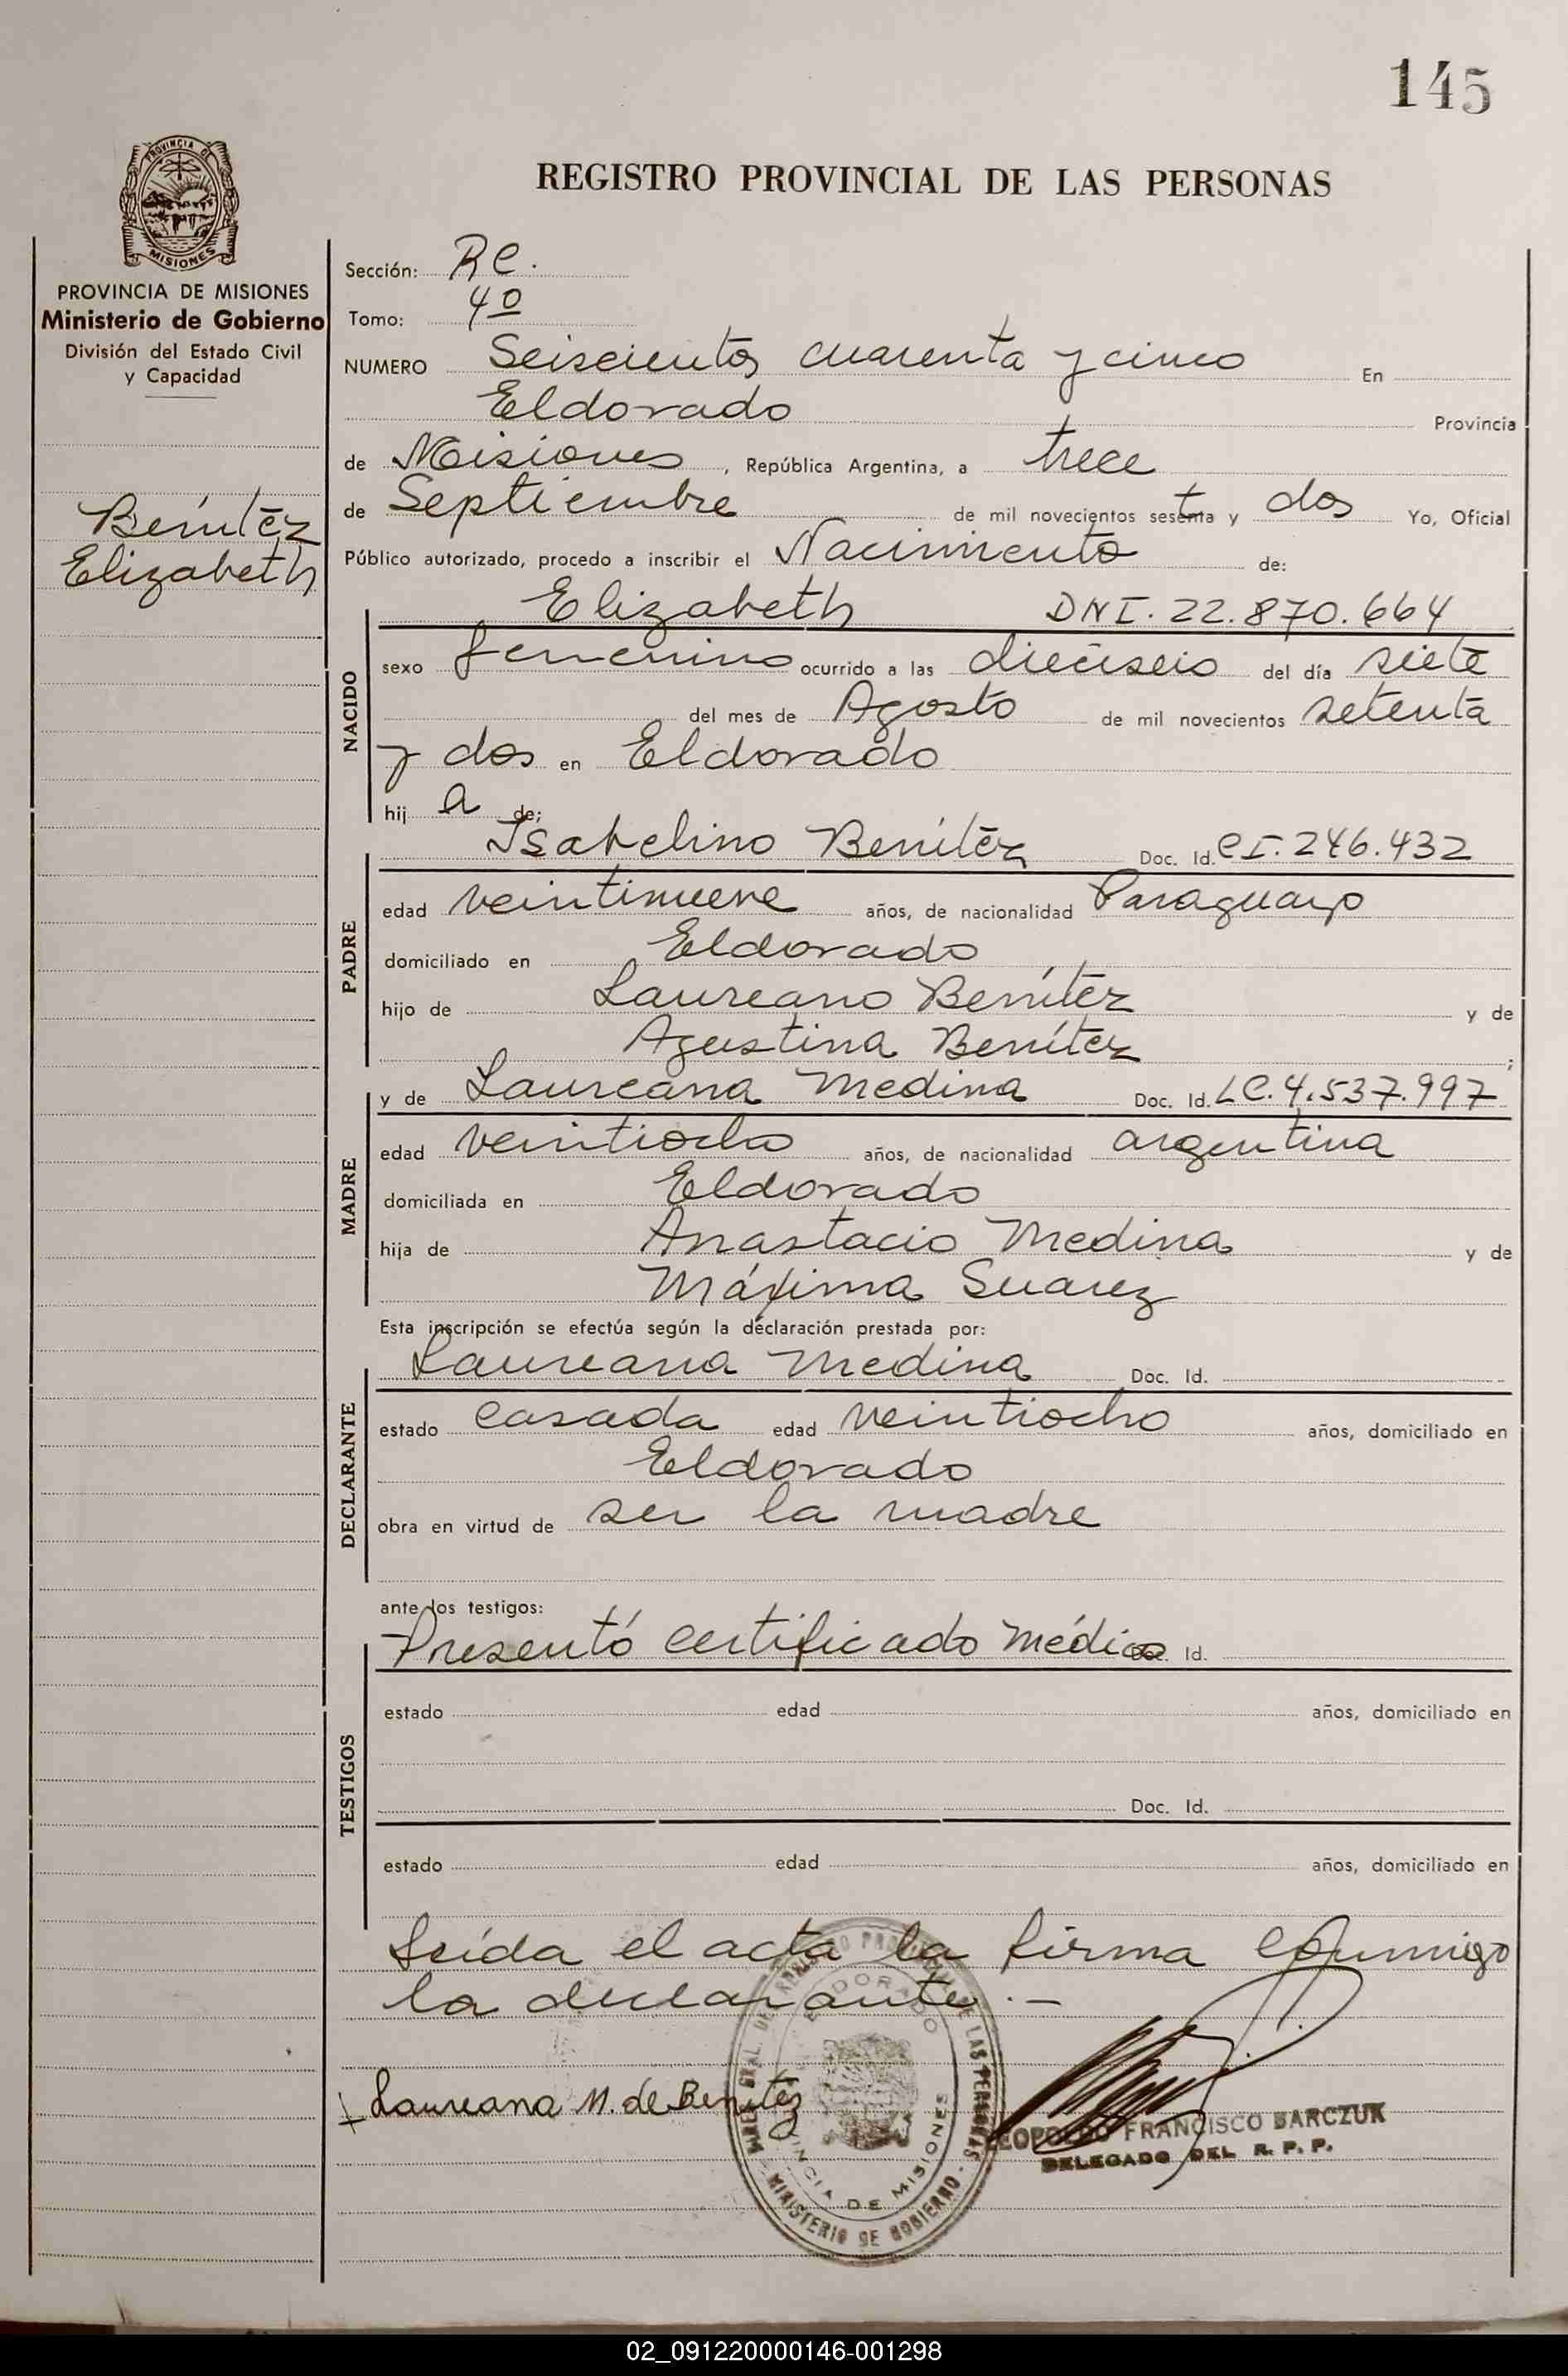 145
REGISTRO PROVINCIAL DE LAS PERSONAS
PROVINCIA DE
MISIONES
PROVINCIA DE MISIONES
Ministerio de Gobierno
División del Estado Civil
y Capacidad
Benítez
Elizabeth
Sección: RC.
Tomo: 4º
NUMERO Seiscientos cuarenta y cinco En
Eldorado Provincia
de Misiones, República Argentina, a trece
de Septiembre de mil novecientos setenta y dos Yo, Oficial
Público autorizado, procedo a inscribir el Nacimiento de:
Elizabeth DNI. 22.870.664
NACIDO
sexo femenino ocurrido a las dieciseis del día siete
del mes de Agosto de mil novecientos setenta
y dos en Eldorado
hij a de;
Isabelino Benítez Doc. Id. CI. 246.432
PADRE
edad veintinueve años, de nacionalidad Paraguayo
domiciliado en Eldorado
hijo de Laureano Benítez y de
Agustina Benítez ;
y de Laureana Medina Doc. Id. LC. 4.537.997
MADRE
edad veintiocho años, de nacionalidad argentina
domiciliada en Eldorado
hija de Anastacio Medina y de
Máxima Suarez
Esta inscripción se efectúa según la declaración prestada por:
Laureana Medina Doc. Id.
DECLARANTE
estado casada edad veintiocho años, domiciliado en
Eldorado
obra en virtud de ser la madre
ante los testigos:
Presentó certificado médico Doc. Id.
TESTIGOS
estado edad años, domiciliado en
Doc. Id.
estado edad años, domiciliado en
Leída el acta la firma conmigo
la declarante.—
Laureana M. de Benitez
ELDORADO
PROVINCIA DE MISIONES
MINISTERIO DE GOBIERNO
LEOPOLDO FRANCISCO BARCZUK
DELEGADO DEL R. P. P.
02_091220000146-001298